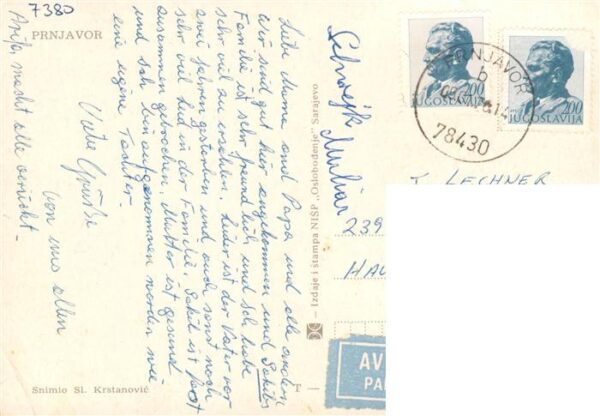 7380
PRNJAVOR
Liebe Mama und Papa und alle anderen
Wir sind gut hier angekommen und Sakibs
Familie ist sehr freundlich und ich habe
sehr viel zu erzählen. Leider ist der Vater vor
zwei Jahren gestorben und auch sonst noch
sehr viel Leid in der Familie. Sakib ist fast
zusammen gebrochen. Mutter ist gesund
und ich bin aufgenommen worden wie
eine eigene Tochter.
Viele Grüsse
von uns allen
macht alle verrückt.
Snimio Sl. Krstanović
Izdaje i štampa NIŠP „Oslobođenje“ Sarajevo
2,00
JUGOSLAVIJA
2,00
JUGOSLAVIJA
PRNJAVOR
b
78430
LECHNER
239
HAU
AV
PA